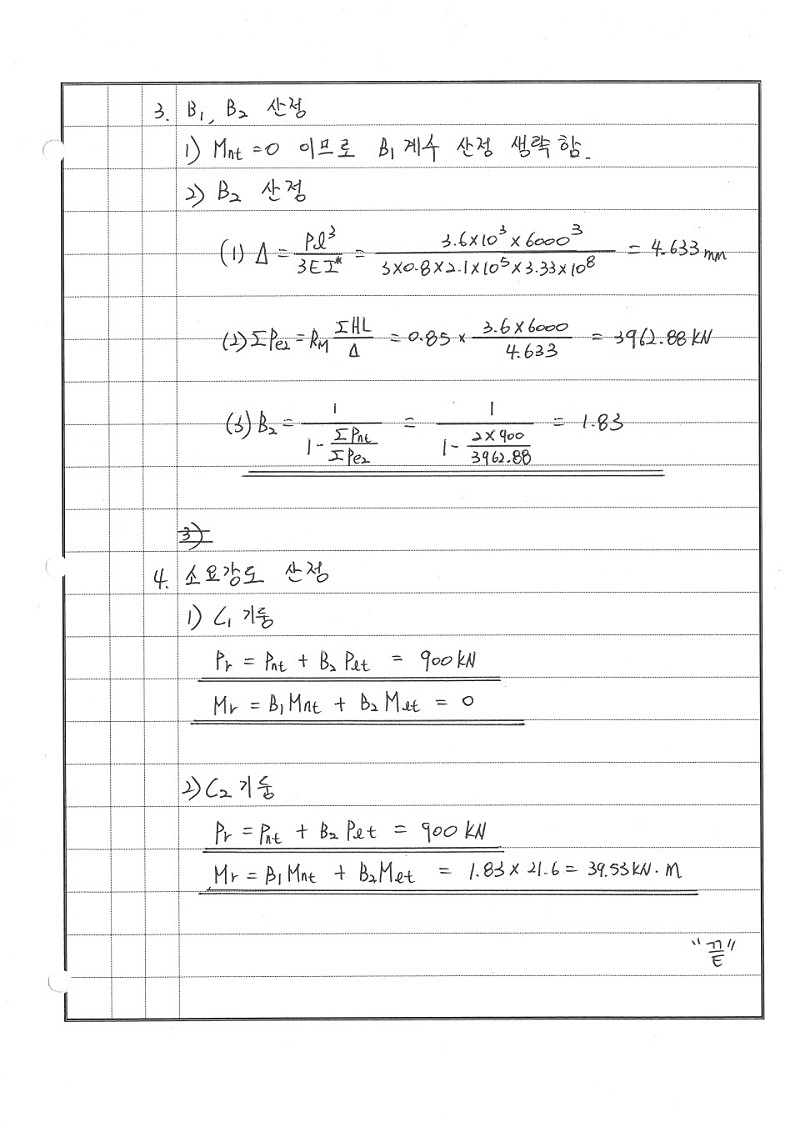 3. B₁, B₂ 산정
1) Mnt = 0 이므로 B₁ 계수 산정 생략함.
2) B₂ 산정
(1) Δ = Pl³/3EI* = 3.6×10³×6000³/3×0.8×2.1×10⁵×3.33×10⁸ = 4.633mm
(2) ΣPe2 = RM ΣHL/Δ = 0.85 × 3.6×6000/4.633 = 3962.88 kN
(3) B₂ = 1/1-ΣPnt/ΣPe2 = 1/1-2×900/3962.88 = 1.83
3)
4. 소요강도 산정
1) C₁ 기둥
Pr = Pnt + B₂ Plt = 900 kN
Mr = B₁Mnt + B₂Mlt = 0
2) C₂ 기둥
Pr = Pnt + B₂ Plt = 900 kN
Mr = B₁Mnt + B₂Mlt = 1.83 × 21.6 = 39.53 kN·m
"끝"